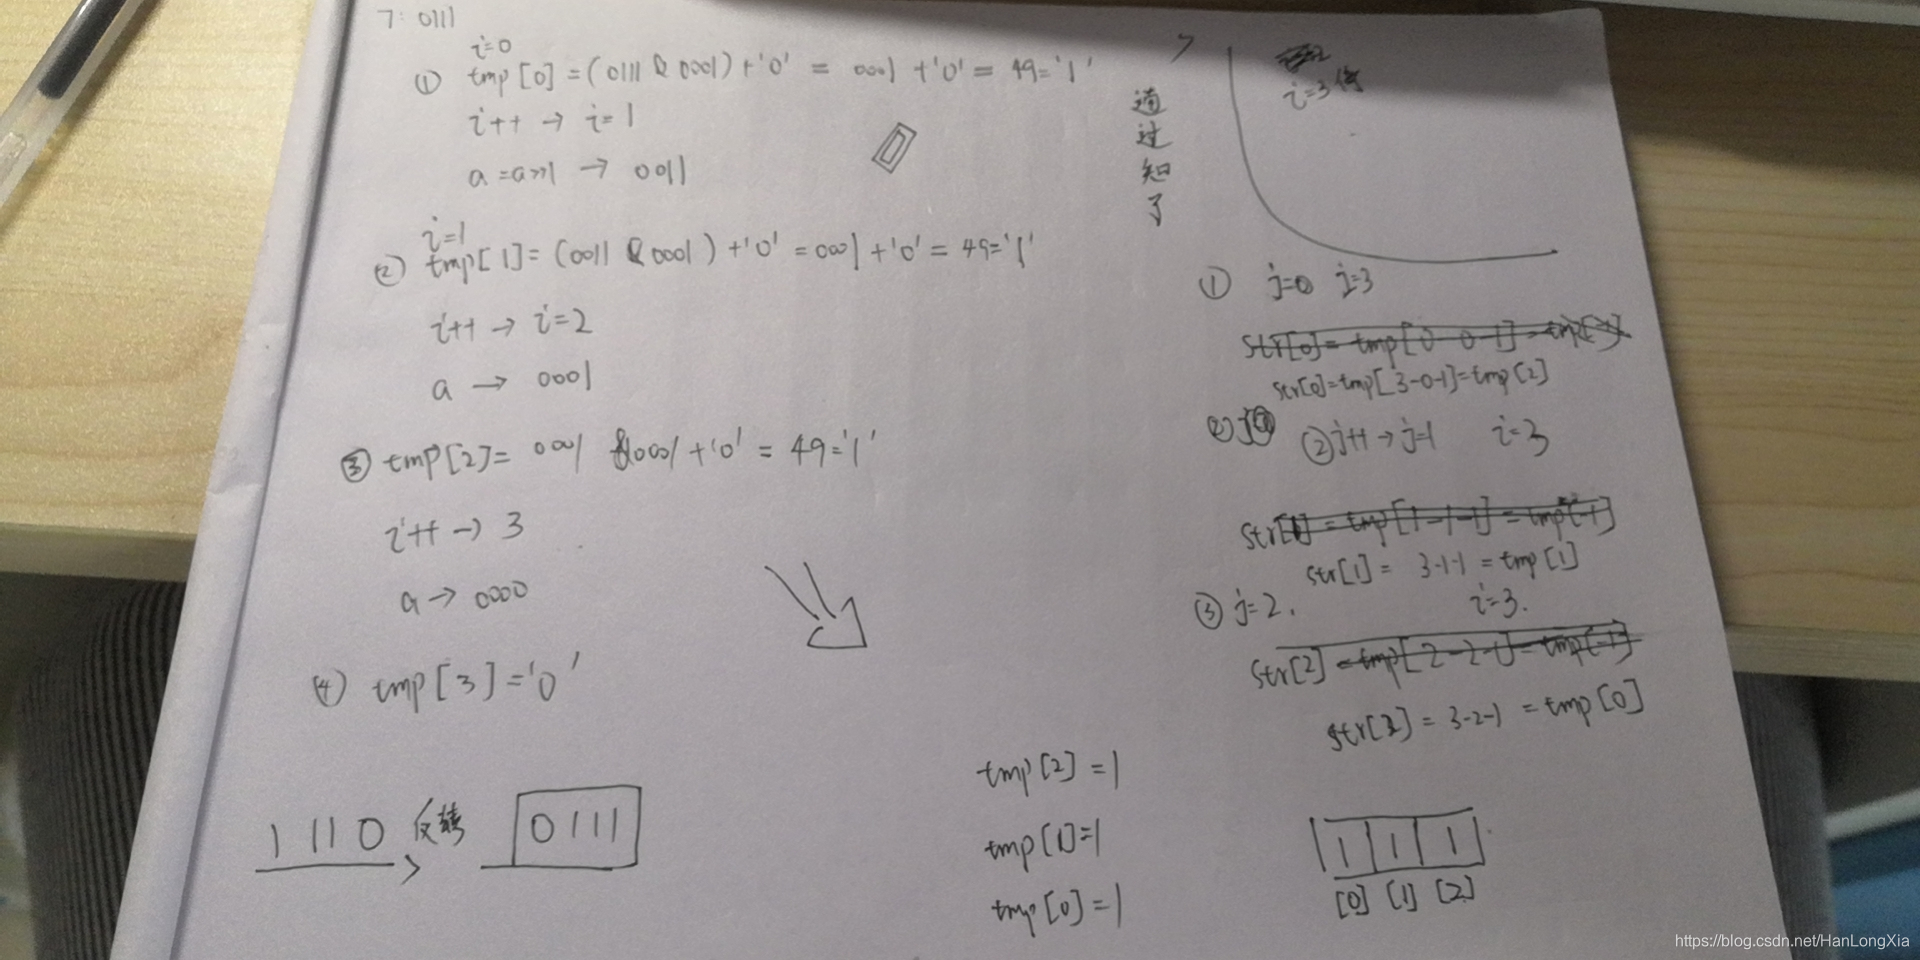 7: 0111
i=0
① tmp[0]=(0111 & 0001)+'0' = 0001 +'0' = 49='1'
i++ → i=1
a=a>>1 → 0011
i=1
② tmp[1]=(0011 & 0001)+'0'=0001+'0'=49='1'
i++ → i=2
a → 0001
③ tmp[2]= 0001 &0001+'0' = 49='1'
i++ → 3
a → 0000
(4) tmp[3]='0'
1110 反转 0111
通
过
知
了
i=3
① j=0 i=3
str[0]=tmp[0-0-1]=tmp[-1]
str[0]=tmp[3-0-1]=tmp[2]
② j++→j=1 i=3
str[1]=tmp[1-1-1]=tmp[-1]
str[1]= 3-1-1 =tmp[1]
③ j=2. i=3.
str[2]=tmp[2-2-1]=tmp[-1]
str[2]= 3-2-1 =tmp[0]
tmp[2]=1
tmp[1]=1
tmp[0]=1
1 1 1
[0] [1] [2]
https://blog.csdn.net/HanLongXia